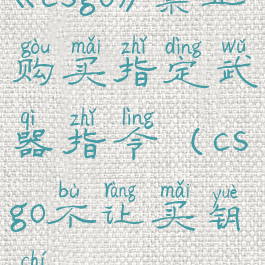 《csgo》
gòu mǎi zhǐ dìng wǔ
购买指定武
qì zhǐ lìng
器指令（cs
bù ràng mǎi yuè
go不让买钥
chí